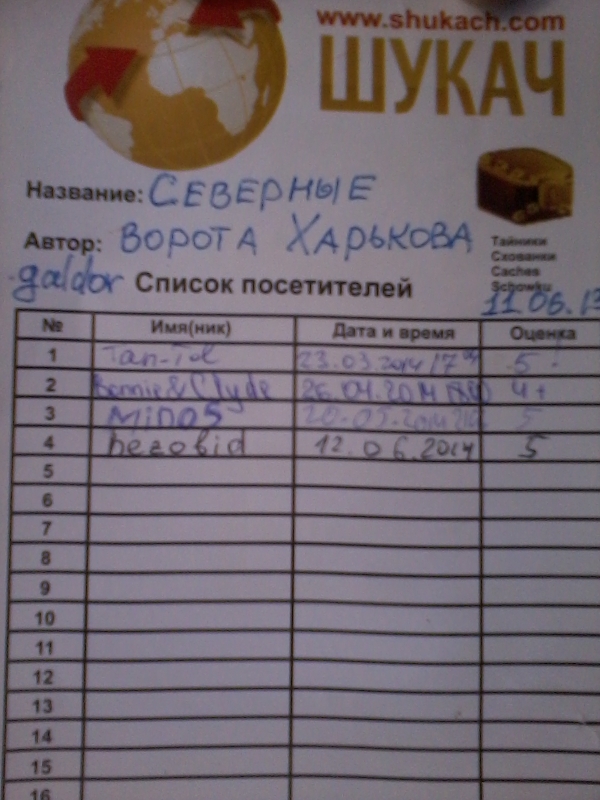 www.shukach.com
ШУКАЧ
Название: СЕВЕРНЫЕ
Автор: ВОРОТА ХАРЬКОВА
Тайники
Схованки
Caches
Schowku
galdor Список посетителей
11.06.13
№ Имя(ник) Дата и время Оценка
1 Tan-Tol 23.03.2014 5
2 Bonnie&Clyde 26.04.2014 4+
3 MinoS 20.05.2014 5
4 hezobid 12.06.2014 5
5
6
7
8
9
10
11
12
13
14
15
16